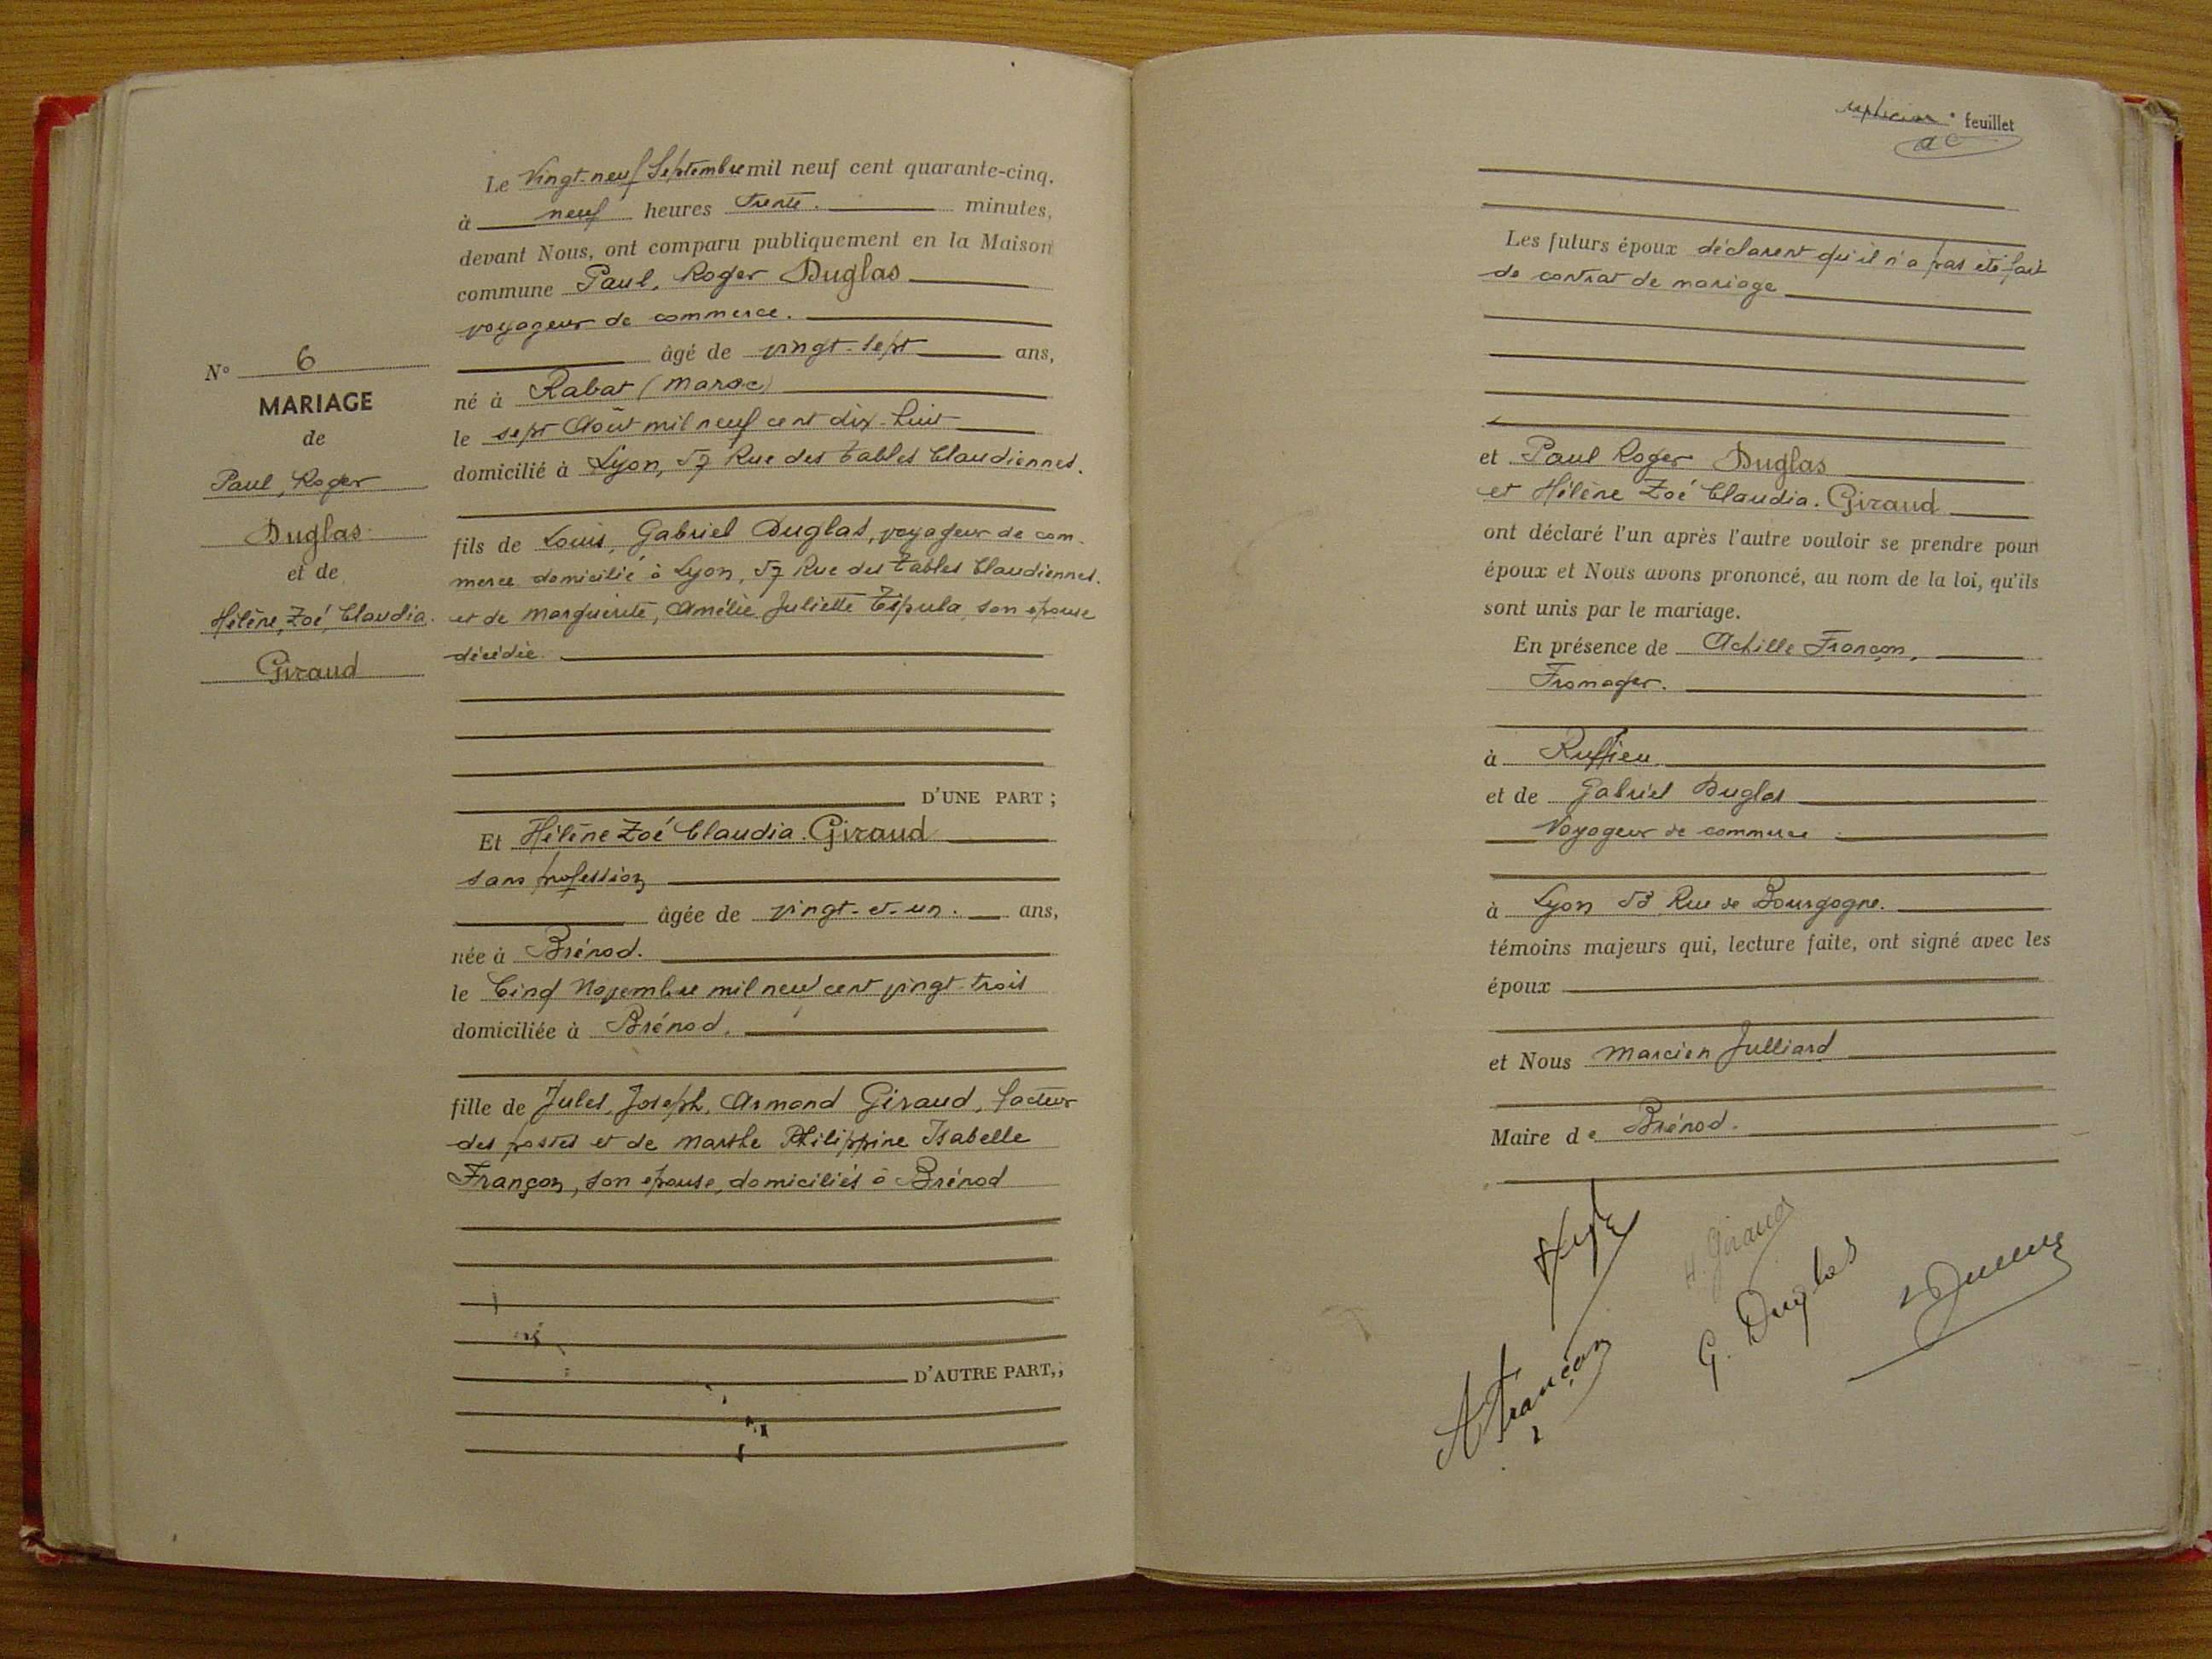 Le Vingt-neuf Septembre mil neuf cent quarante-cinq,
à neuf heures trente. minutes,
devant Nous, ont comparu publiquement en la Maison
commune Paul, Roger Duglas
voyageur de commerce.
âgé de vingt-sept ans,
né à Rabat (Maroc)
le sept Août mil neuf cent dix-huit
domicilié à Lyon, 57 Rue des Tables Claudiennes.
fils de Louis, Gabriel Duglas, voyageur de com-
merce domicilié à Lyon, 57 Rue des Tables Claudiennes.
et de Marguerite, Amélie Juliette Tipula, son épouse
décédée.
D'UNE PART ;
Et Hélène Zoé Claudia. Giraud
sans profession
âgée de vingt-et-un. ans,
née à Brénod.
le Cinq Novembre mil neuf cent vingt-trois
domiciliée à Brénod.
fille de Jules, Joseph, Armand Giraud, facteur
des postes et de Marthe Philippine Isabelle
Françon, son épouse, domiciliés à Brénod
D'AUTRE PART,;
N° 6
MARIAGE
de
Paul, Roger
Duglas
et de
Hélène, Zoé, Claudia.
Giraud
feuillet
Les futurs époux déclarent qu'il n'a pas été fait
de contrat de mariage
et Paul Roger Duglas
et Hélène Zoé Claudia. Giraud
ont déclaré l'un après l'autre vouloir se prendre pour
époux et Nous avons prononcé, au nom de la loi, qu'ils
sont unis par le mariage.
En présence de Achille Françon,
Fromager.
à Ruffieu
et de Gabriel Duglas
Voyageur de commerce
à Lyon 53 Rue de Bourgogne.
témoins majeurs qui, lecture faite, ont signé avec les
époux
et Nous Marcien Julliard
Maire de Brénod.
H. Giraud
G. Duglas
A Françon